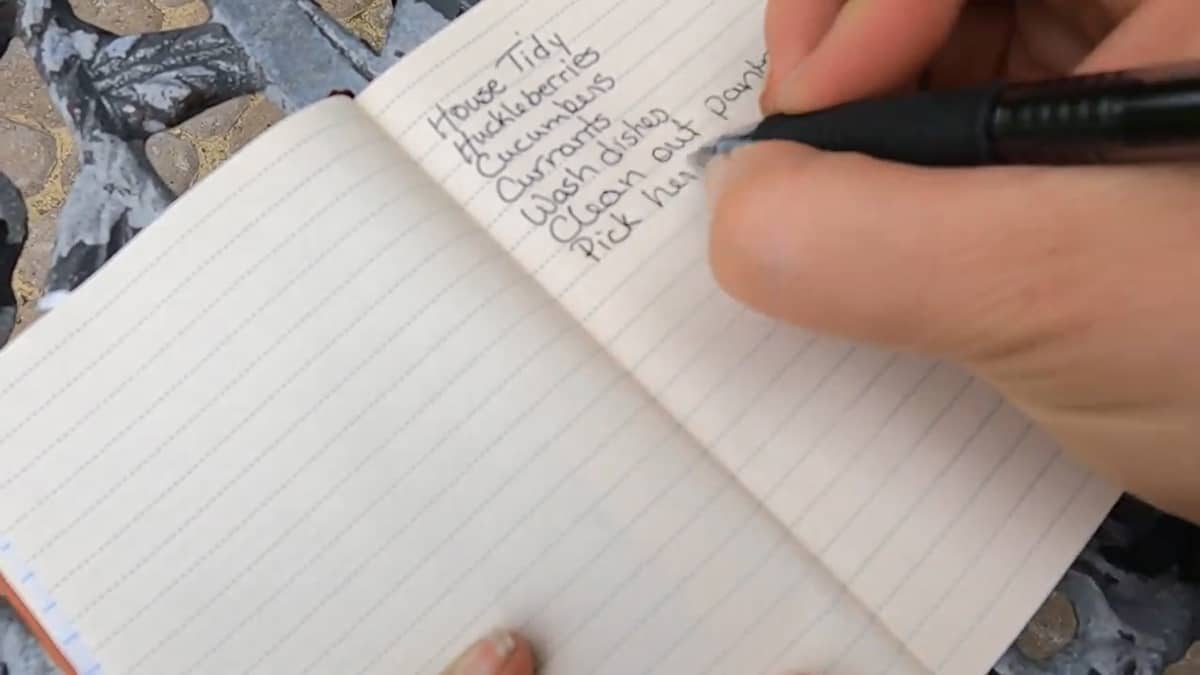 House Tidy
Huckleberries
Cucumbers
Currants
Wash dishes
Clean out pant
Pick her